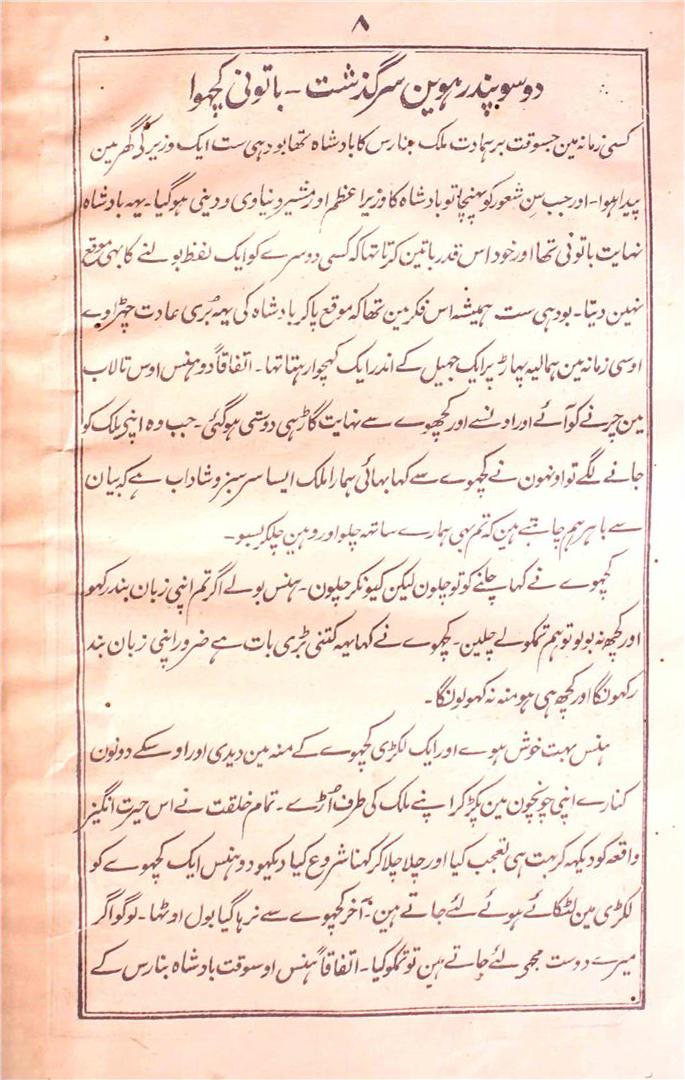 ۸
دو سو پندرہوین سرگذشت - باتونی کچھوا
کسی زمانہ مین جسوقت برہمادت ملک بنارس کا بادشاہ تھا بودہی ست ایک وزیر کی گھر مین
پیدا ہوا - اور جب سِن شعور کو پہنچا تو بادشاہ کا وزیر اعظم اور مشیر دنیاوی و دینی ہوگیا - یہہ بادشاہ
نہایت باتونی تھا اور خود اس قدر باتین کرتا تہا کہ کسی دوسرے کو ایک لفظ بولنے کا بہی موقع
نہین دیتا - بودہی ست ہمیشہ اس فکر مین تھا کہ موقع پاکر بادشاہ کی یہہ بُری عادت چہڑاوے
اوسی زمانہ مین ہمالیہ پہاڑ پر ایک جہیل کے اندر ایک کہچوا رہتا تہا - اتفاقاً دو ہنس اوس تالاب
مین چرنے کو آئے اور اونسے اور کچھوے سے نہایت گاڑہی دوستی ہوگئی - جب وہ اپنی ملک کو
جانے لگے تو اونہون نے کچھوے سے کہا بہائی ہمارا ملک ایسا سرسبز و شاداب ہے کہ بیان
سے باہر ہم چاہتے ہین کہ تم بہی ہمارے ساتہہ چلو اور وہین چلکر بسو -
کچھوے نے کہا چلنے کو تو چلون لیکن کیونکر چلون - ہنس بولے اگر تم اپنی زبان بند رکہو
اور کچھ نہ بولو تو ہم تمکو لے چلین - کچھوے نے کہا یہہ کتنی بڑی بات ہے ضرور اپنی زبان بند
رکہونگا اور کچھ ہی ہو منہ نہ کہولونگا -
ہنس بہت خوش ہوے اور ایک لکڑی کچھوے کے منہ مین دیدی اور اوسکے دونون
کنارے اپنی چونچون مین پکڑ کر اپنے ملک کی طرف اُڑے - تمام خلقت نے اس حیرت انگیز
واقعہ کو دیکہہ کر بہت ہی تعجب کیا اور چلا چلا کر کہنا شروع کیا دیکہو دو ہنس ایک کچھوے کو
لکڑی مین لٹکائے ہوئے لئے جاتے ہین - آخر کچھوے سے نرہا گیا بول اوٹہا - لوگو اگر
میرے دوست مجھے لئے جاتے ہین تو تمکو کیا - اتفاقاً ہنس اوسوقت بادشاہ بنارس کے